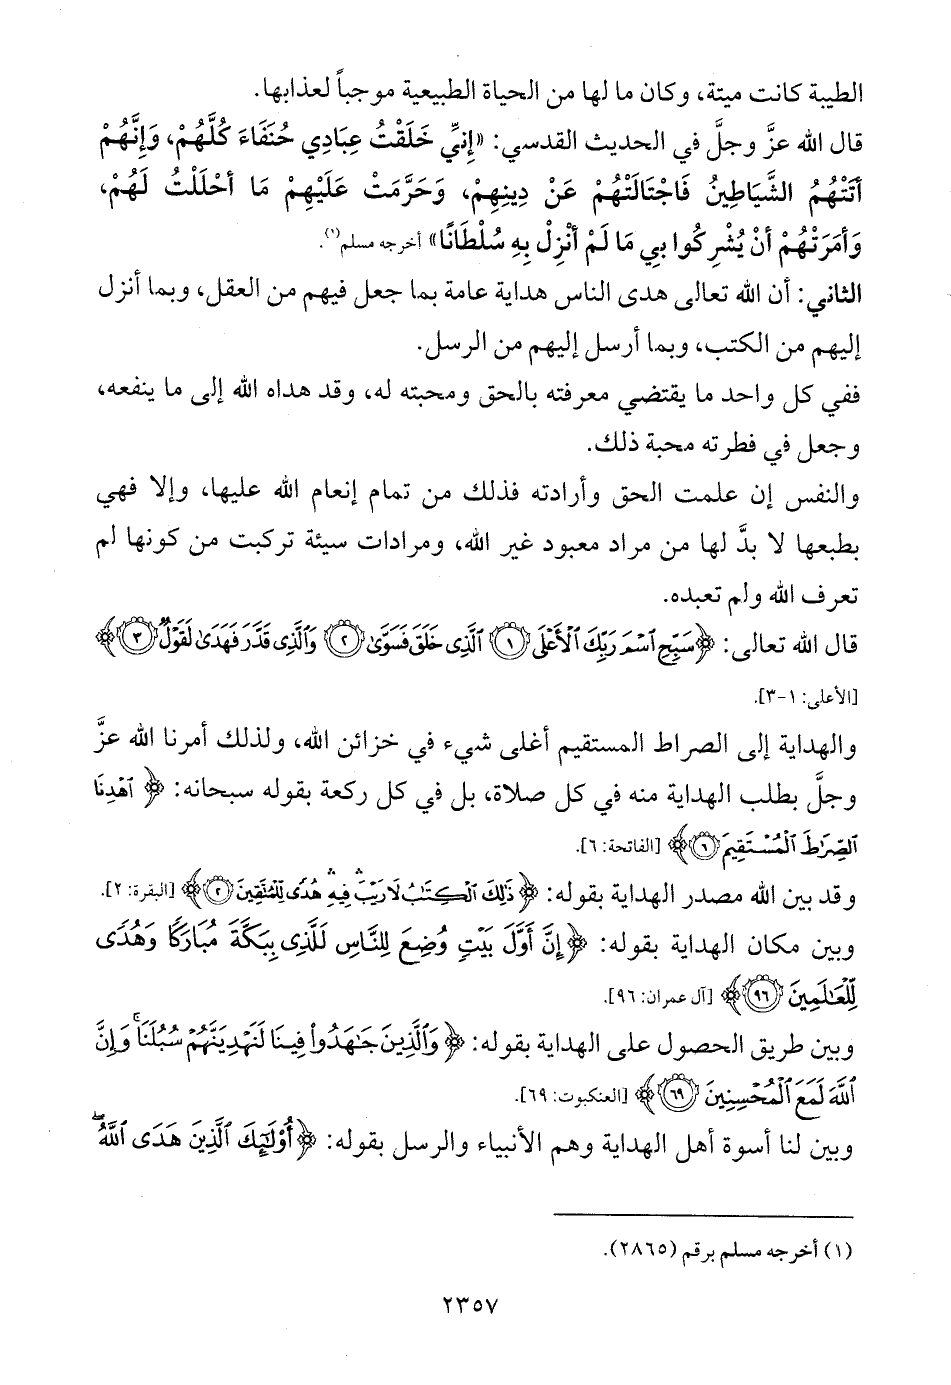 الطيبة كانت ميتة، وكان ما لها من الحياة الطبيعية موجباً لعذابها.
قال الله عزَّ وجلَّ في الحديث القدسي: «إِنِّي خَلَقْتُ عِبَادِي حُنَفَاءَ كُلَّهُمْ، وَإِنَّهُمْ
أَتَتْهُمُ الشَّيَاطِينُ فَاجْتَالَتْهُمْ عَنْ دِينِهِمْ، وَحَرَّمَتْ عَلَيْهِمْ مَا أَحْلَلْتُ لَهُمْ،
وَأَمَرَتْهُمْ أَنْ يُشْرِكُوا بِي مَا لَمْ أُنْزِلْ بِهِ سُلْطَانًا» أخرجه مسلم(١).
الثاني: أن الله تعالى هدى الناس هداية عامة بما جعل فيهم من العقل، وبما أنزل
إليهم من الكتب، وبما أرسل إليهم من الرسل.
ففي كل واحد ما يقتضي معرفته بالحق ومحبته له، وقد هداه الله إلى ما ينفعه،
وجعل في فطرته محبة ذلك.
والنفس إن علمت الحق وأرادته فذلك من تمام إنعام الله عليها، وإلا فهي
بطبعها لا بدَّ لها من مراد معبود غير الله، ومرادات سيئة تركبت من كونها لم
تعرف الله ولم تعبده.
قال الله تعالى: ﴿سَبِّحِ ٱسْمَ رَبِّكَ ٱلْأَعْلَى ١ ٱلَّذِى خَلَقَ فَسَوَّىٰ ٢ وَٱلَّذِى قَدَّرَ فَهَدَىٰ ٣﴾
[الأعلى: ١-٣].
والهداية إلى الصراط المستقيم أغلى شيء في خزائن الله، ولذلك أمرنا الله عزَّ
وجلَّ بطلب الهداية منه في كل صلاة، بل في كل ركعة بقوله سبحانه: ﴿ٱهْدِنَا
ٱلصِّرَٰطَ ٱلْمُسْتَقِيمَ ٦﴾ [الفاتحة: ٦].
وقد بين الله مصدر الهداية بقوله: ﴿ذَٰلِكَ ٱلْكِتَٰبُ لَا رَيْبَ ۛ فِيهِ ۛ هُدًى لِّلْمُتَّقِينَ ٢﴾ [البقرة: ٢].
وبين مكان الهداية بقوله: ﴿إِنَّ أَوَّلَ بَيْتٍ وُضِعَ لِلنَّاسِ لَلَّذِى بِبَكَّةَ مُبَارَكًا وَهُدًى
لِّلْعَٰلَمِينَ ٩٦﴾ [آل عمران: ٩٦].
وبين طريق الحصول على الهداية بقوله: ﴿وَٱلَّذِينَ جَٰهَدُوا۟ فِينَا لَنَهْدِيَنَّهُمْ سُبُلَنَا ۚ وَإِنَّ
ٱللَّهَ لَمَعَ ٱلْمُحْسِنِينَ ٦٩﴾ [العنكبوت: ٦٩].
وبين لنا أسوة أهل الهداية وهم الأنبياء والرسل بقوله: ﴿أُو۟لَٰٓئِكَ ٱلَّذِينَ هَدَى ٱللَّهُ ۖ
(١) أخرجه مسلم برقم (٢٨٦٥).
٢٣٥٧